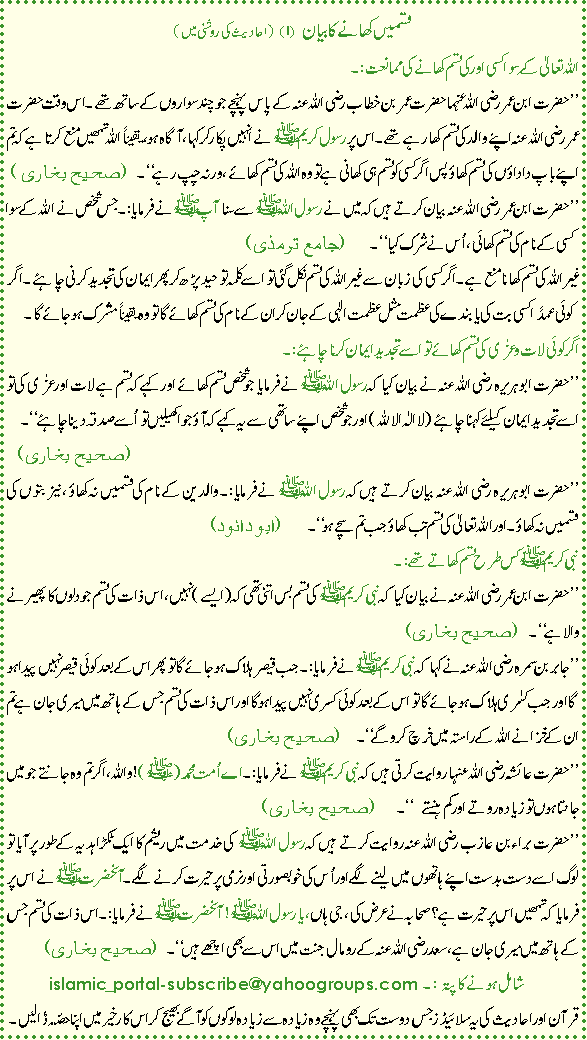 قسمیں کھانے کا بیان (۱) (احادیث کی روشنی میں)
اللہ تعالیٰ کے سوا کسی اور کی قسم کھانے کی ممانعت :۔
’’حضرت ابن عمر رضی اللہ عنہما حضرت عمر بن خطاب رضی اللہ عنہ کے پاس پہنچے جو چند سواروں کے ساتھ تھے ۔ اس وقت حضرت
عمر رضی اللہ عنہ اپنے والد کی قسم کھا رہے تھے ۔ اس پر رسول کریم ﷺ نے انہیں پکار کر کہا ، آگاہ ہو ، یقیناً اللہ تمھیں منع کرتا ہے کہ تم
اپنے باپ داداؤں کی قسم کھاؤ پس اگر کسی کو قسم ہی کھانی ہے تو وہ اللہ کی قسم کھائے ، ورنہ چپ رہے‘‘ ۔ (صحیح بخاری)
’’حضرت ابن عمر رضی اللہ عنہ بیان کرتے ہیں کہ میں نے رسول اللہ ﷺ سے سنا آپ ﷺ نے فرمایا :۔ جس شخص نے اللہ کے سوا
کسی کے نام کی قسم کھائی ، اُس نے شرک کیا‘‘ ۔ (جامع ترمذی)
غیر اللہ کی قسم کھانا منع ہے ۔ اگر کسی کی زبان سے غیر اللہ کی قسم نکل گئی تو اسے کلمہ توحید پڑھ کر پھر ایمان کی تجدید کرنی چاہئے ۔ اگر
کوئی عمداً کسی بت کی یا بندے کی عظمت مثل عظمت الٰہی کے جان کر ان کے نام کی قسم کھائے گا تو وہ یقیناً مشرک ہو جائے گا ۔
اگر کوئی لات و عزّٰی کی قسم کھائے تو اسے تجدید ایمان کرنا چاہئے :۔
’’حضرت ابو ہریرہ رضی اللہ عنہ نے بیان کیا کہ رسول اللہ ﷺ نے فرمایا جو شخص قسم کھائے اور کہے کہ قسم ہے لات اور عزّٰی کی تو
اسے تجدید ایمان کیلئے کہنا چاہئے (لا الہ الا اللہ) اور جو شخص اپنے ساتھی سے یہ کہے کہ آؤ جوا کھیلیں تو اُسے صدقہ دینا چاہئے‘‘ ۔
(صحیح بخاری)
’’حضرت ابو ہریرہ رضی اللہ عنہ بیان کرتے ہیں کہ رسول اللہ ﷺ نے فرمایا :۔ والدین کے نام کی قسمیں نہ کھاؤ ، نیز بتوں کی
قسمیں نہ کھاؤ ۔ اور اللہ تعالیٰ کی قسم تب کھاؤ جب تم سچے ہو‘‘ ۔ (ابو داﺅد)
نبی کریم ﷺ کس طرح قسم کھاتے تھے :۔
’’حضرت ابن عمر رضی اللہ عنہ نے بیان کیا کہ نبی کریم ﷺ کی قسم بس اتنی تھی کہ (ایسے) نہیں ، اس ذات کی قسم جو دلوں کا پھیرنے
والا ہے‘‘ ۔ (صحیح بخاری)
’’جابر بن سمرہ رضی اللہ عنہ نے کہا کہ نبی کریم ﷺ نے فرمایا :۔ جب قیصر ہلاک ہو جائے گا تو پھر اس کے بعد کوئی قیصر نہیں پیدا ہو
گا اور جب کسریٰ ہلاک ہو جائے گا تو اس کے بعد کوئی کسریٰ نہیں پیدا ہوگا اور اس ذات کی قسم جس کے ہاتھ میں میری جان ہے تم
ان کے خزانے اللہ کے راستہ میں خرچ کرو گے‘‘ ۔ (صحیح بخاری)
’’حضرت عائشہ رضی اللہ عنہا روایت کرتی ہیں کہ نبی کریم ﷺ نے فرمایا :۔ اے اُمت محمد (ﷺ) ! واللہ ، اگر تم وہ جانتے جو میں
جانتا ہوں تو زیادہ روتے اور کم ہنستے ‘‘ ۔ (صحیح بخاری)
’’حضرت براء بن عازب رضی اللہ عنہ روایت کرتے ہیں کہ رسول اللہ ﷺ کی خدمت میں ریشم کا ایک ٹکڑا ہدیہ کے طور پر آیا تو
لوگ اسے دست بدست اپنے ہاتھوں میں لینے لگے اور اُس کی خوبصورتی اور نرمی پر حیرت کرنے لگے ۔ آنحضرت ﷺ نے اس پر
فرمایا کہ تمھیں اس پر حیرت ہے؟ صحابہ نے عرض کی ، جی ہاں ، یا رسول اللہ ﷺ ! آنحضرت ﷺ نے فرمایا :۔ اس ذات کی قسم جس
کے ہاتھ میں میری جان ہے ، سعد رضی اللہ عنہ کے رومال جنت میں اس سے بھی اچھے ہیں‘‘ ۔ (صحیح بخاری)
شامل ہونے کا پتہ :۔ islamic_portal-subscribe@yahoogroups.com
قرآن اور احادیث کی یہ سلائیڈز جس دوست تک بھی پہنچے وہ زیادہ سے زیادہ لوگوں کو آگے بھیج کر اس کارِ خیر میں اپنا حصّہ ڈالیں ۔